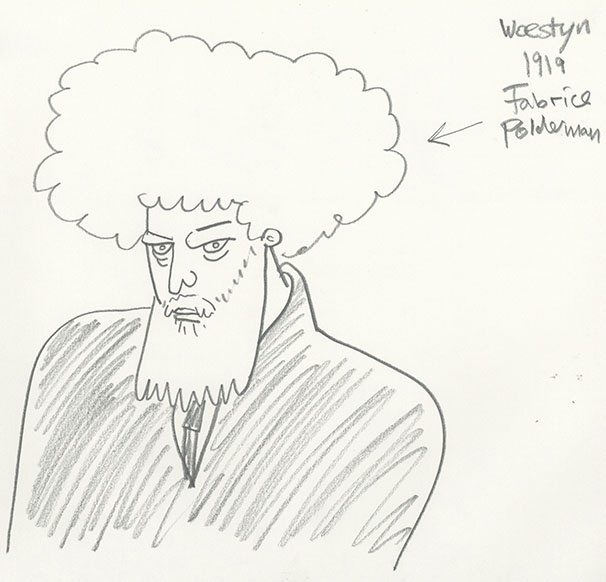 Woestyn
1919
Fabrice
Polderman